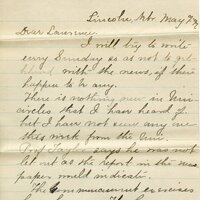 Lincoln, Nbr. May
Dear Lawrence,
I will try to write
every Sunday so as not to get
behind with the news, if there
happen to be any.
There is nothing new in Uni
circles that I have heard of
but I have not seen any one
this week from the Uni
Prof. says he was not
let out as the report in the news
paper would indicate.
The commencement exercises